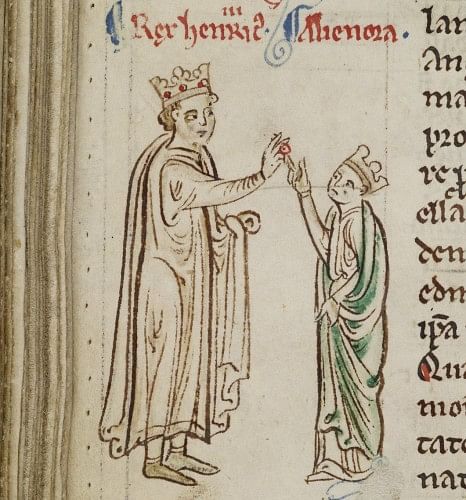 iii
¶ Rex henric᷒. ¶ Alienora.
lan
An
ma
pro
re
ella
den
edm
ip̄a
Qua
mo
tate
nat